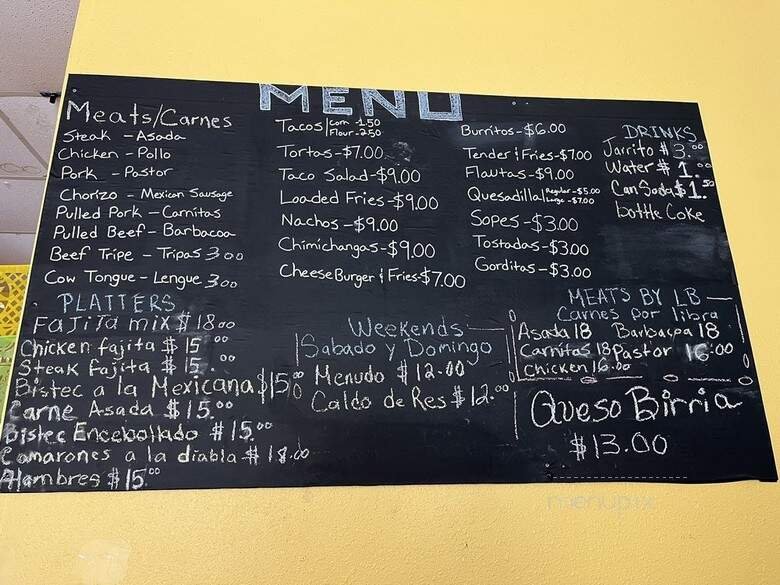 MENU
Meats/Carnes
Steak - Asada
Chicken - Pollo
Pork - Pastor
Chorizo - Mexican Sausage
Pulled Pork - Carnitas
Pulled Beef - Barbacoa
Beef Tripe - Tripas 3.00
Cow Tongue - Lengue 3.00
Tacos Corn -1.50
Flour -2.50
Tortas - $7.00
Taco Salad - $9.00
Loaded Fries - $9.00
Nachos - $9.00
Chimichangas - $9.00
Cheese Burger & Fries - $7.00
Burritos - $6.00
Tender & Fries - $7.00
Flautas - $9.00
Quesadilla Regular - $5.00
Large - $7.00
Sopes - $3.00
Tostadas - $3.00
Gorditas - $3.00
DRINKS
Jarrito $3.00
Water $1.00
Can Soda $1.50
bottle Coke
PLATTERS
Fajita mix $18.00
Chicken fajita $15.00
Steak fajita $15.00
Bistec a la Mexicana $15.00
Carne Asada $15.00
Bistec Encebollado $15.00
Camarones a la diabla $18.00
Alambres $15.00
Weekends
Sabado y Domingo
Menudo $12.00
Caldo de Res $12.00
MEATS BY LB
Carnes por libra
Asada 18 Barbacoa 18
Carnitas 18 Pastor 16.00
Chicken 16.00
Queso Birria
$13.00
menupix